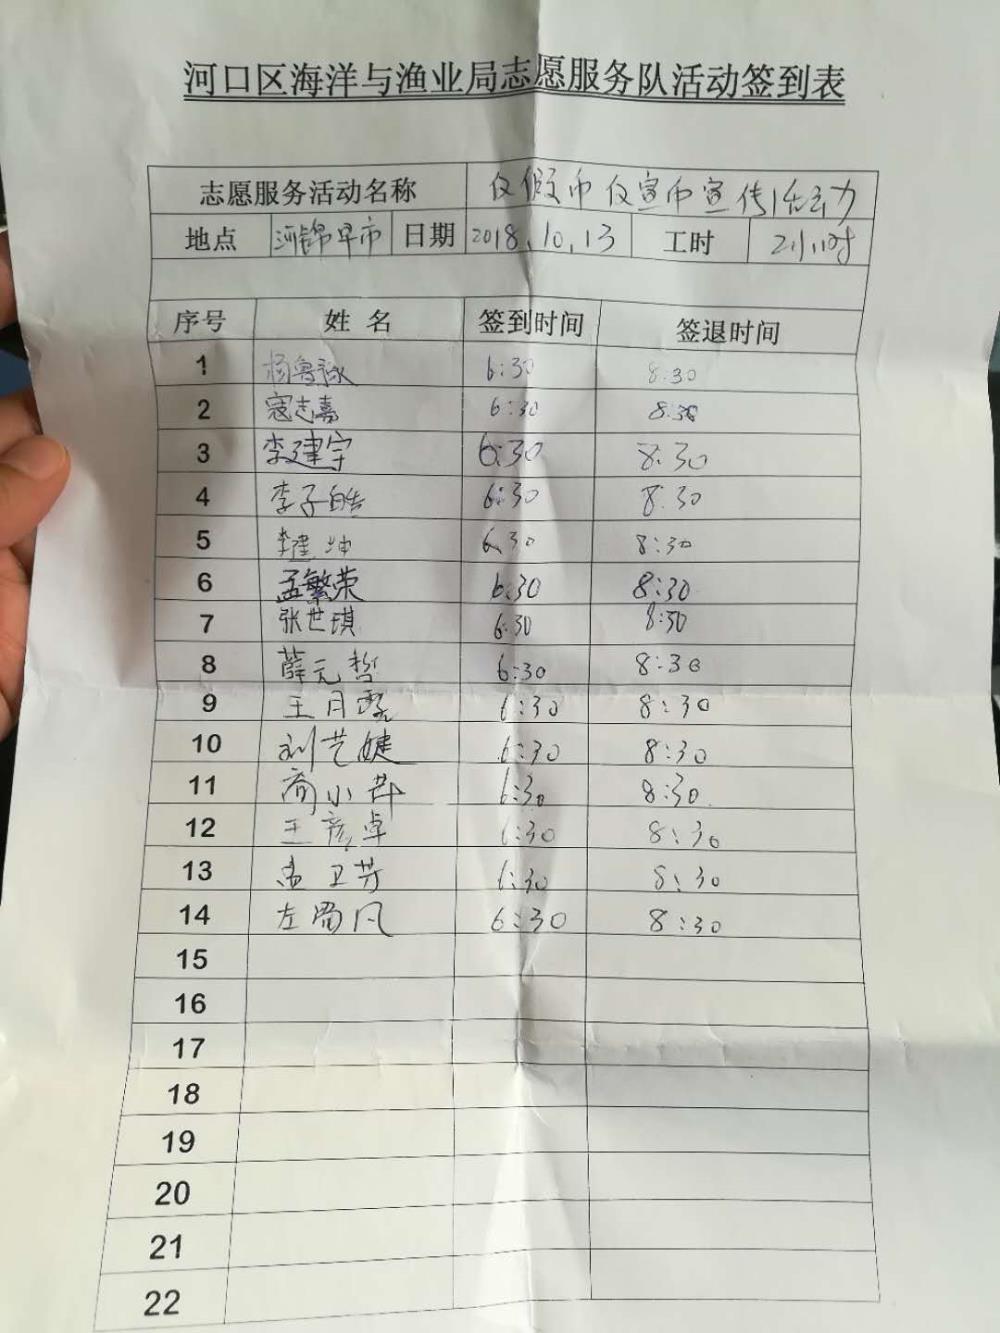 河口区海洋与渔业局志愿服务队活动签到表
志愿服务活动名称 反假币 反宣币宣传活动
地点 河锦早市 日期 2018.10.13 工时 2小时
序号 姓名 签到时间 签退时间
1 杨鲁豫 6:30 8:30
2 寇志嘉 6:30 8:30
3 李建宇 6:30 8:30
4 李子皓 6:30 8:30
5 李建坤 6:30 8:30
6 孟繁荣 6:30 8:30
7 张世琪 6:30 8:30
8 薛元哲 6:30 8:30
9 王月 6:30 8:30
10 刘艺婕 6:30 8:30
11 小 6:30 8:30
12 王彦卓 6:30 8:30
13 卫芳 6:30 8:30
14 左 凡 6:30 8:30
15
16
17
18
19
20
21
22